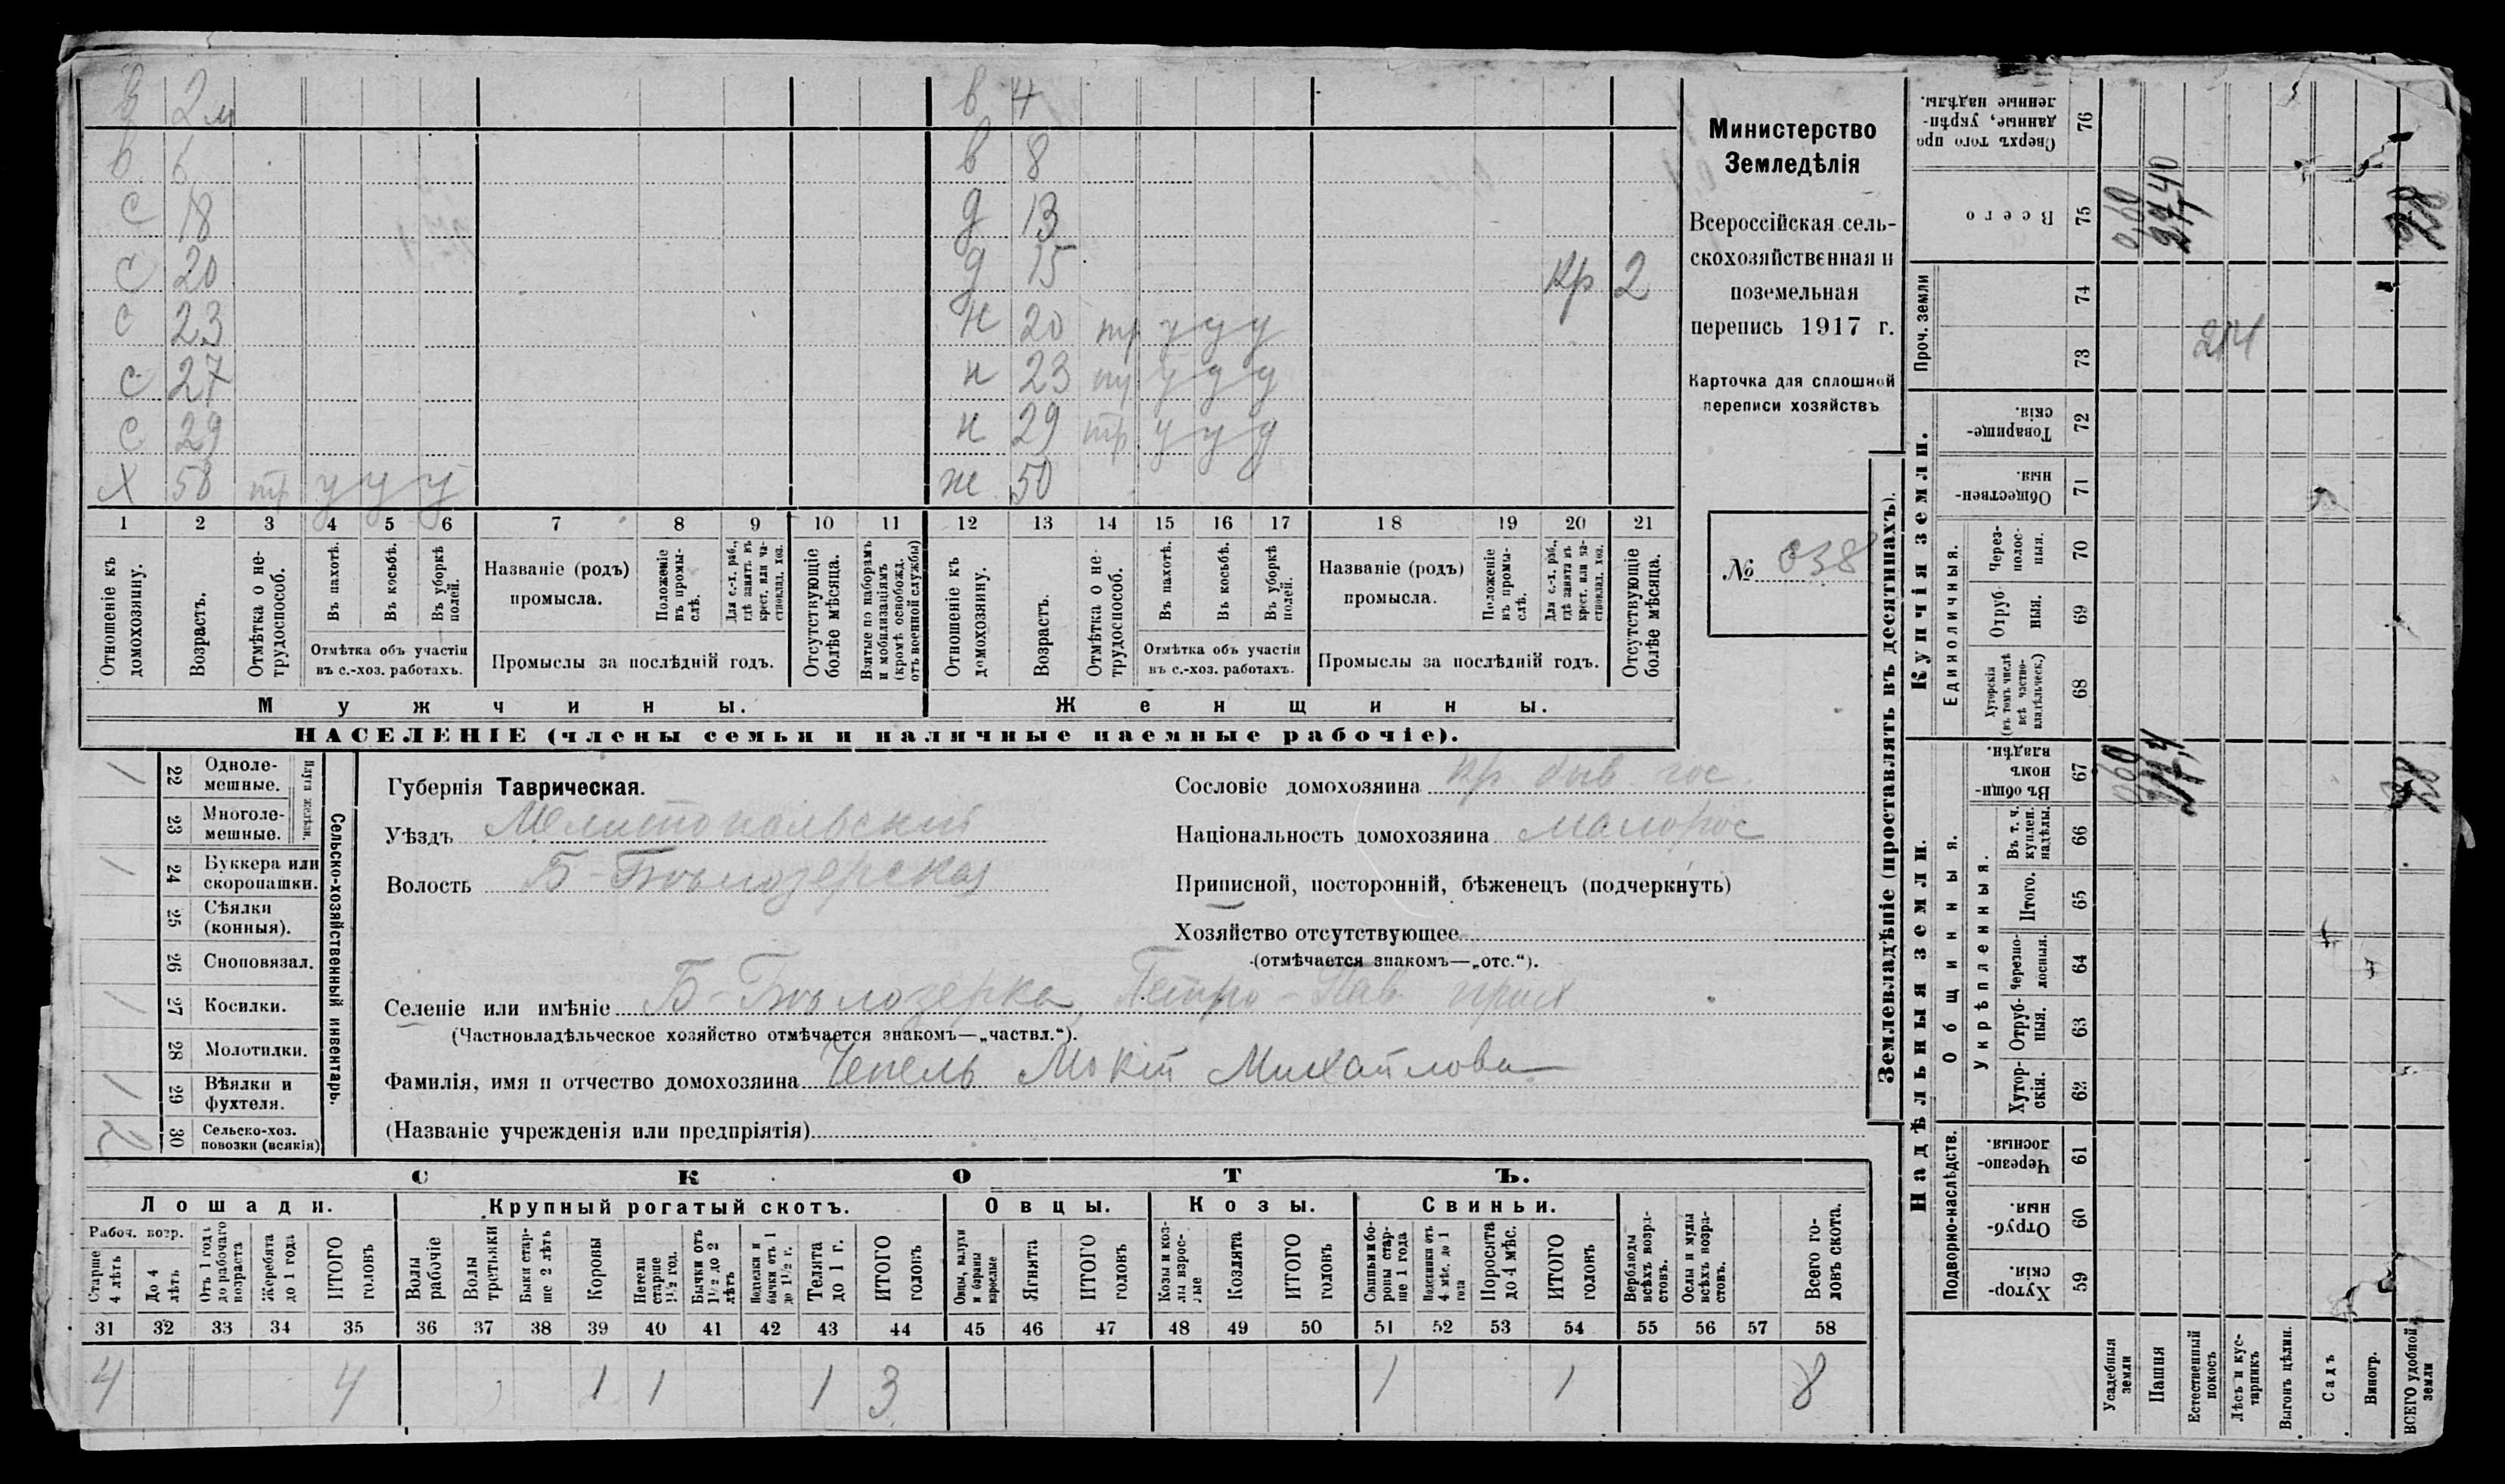 в 2м в 4
в 6 в 8
с 18 д 13
с 20 д 15 кр 2
с 23 н 20 тр у у у
с 27 н 23 тр у у у
с 29 н 29 тр у у у
х 58 тр у у у ж 50
1 2 3 4 5 6 7 8 9 10 11 12 13 14 15 16 17 18 19 20 21
Отношеніе къ домохозяину.
Возрастъ.
Отмѣтка о не-трудоспособ.
Въ пахотѣ.
Въ косьбѣ.
Въ уборкѣ полей.
Отмѣтка объ участіи
въ с.-хоз. работахъ.
Названіе (родъ)
промысла.
Положеніе въ промы-слѣ.
Для с.-х. раб., гдѣ занятъ въ крест. или ча-стновлад. хоз.
Промыслы за послѣдній годъ.
Отсутствующіе болѣе мѣсяца.
Взятые по наборамъ и мобилизаціямъ (кромѣ освобожд. отъ военной службы)
Отношеніе къ домохозяину.
Возрастъ.
Отмѣтка о не-трудоспособ.
Въ пахотѣ.
Въ косьбѣ.
Въ уборкѣ полей.
Отмѣтка объ участіи
въ с.-хоз. работахъ.
Названіе (родъ)
промысла.
Положеніе въ промы-слѣ.
Для с.-х. раб., гдѣ занята въ крест. или ча-стновлад. хоз.
Промыслы за послѣдній годъ.
Отсутствующіе болѣе мѣсяца.
Мужчины. Женщины.
НАСЕЛЕНІЕ (члены семьи и наличные наемные рабочіе).
Министерство
Земледѣлія
Всероссійская сель-
скохозяйственная и
поземельная
перепись 1917 г.
Карточка для сплошной
переписи хозяйствъ
№ 038
Сельско-хозяйственный инвентарь.
Плуги желѣзн.
1 22 Одноле-мешные.
23 Многоле-мешные.
1 24 Буккера или скоропашки.
25 Сѣялки (конныя).
26 Сноповязал.
1 27 Косилки.
28 Молотилки.
1 29 Вѣялки и фухтеля.
2 30 Сельско-хоз. повозки (всякія)
Губернія Таврическая.
Уѣздъ Мелитопольскій
Волость Б-Бѣлозерская
Сословіе домохозяина кр. быв. гос.
Національность домохозяина малорос
Приписной, посторонній, бѣженецъ (подчеркнуть)
Хозяйство отсутствующее
(отмѣчается знакомъ—„отс.“).
Селеніе или имѣніе Б-Бѣлозерка, Петро-Пав. прих
(Частновладѣльческое хозяйство отмѣчается знакомъ—„частвл.“).
Фамилія, имя и отчество домохозяина Чепель Мокій Михайлови
(Названіе учрежденія или предпріятія)
СКОТЪ.
Лошади. Крупный рогатый скотъ. Овцы. Козы. Свиньи.
Рабоч. возр.
Старше 4 лѣтъ
До 4 лѣтъ
Отъ 1 года до рабочаго возраста
Жеребята до 1 года
ИТОГО головъ
Волы рабочіе
Волы третьяки
Быки стар-ше 2 лѣтъ
Коровы
Нетели старше 1½ год.
Бычки отъ 1½ до 2 лѣтъ
Телки и бычки отъ 1 до 1½ г.
Телята до 1 г.
ИТОГО головъ
Овцы, валухи и бараны взрослые
Ягнята
ИТОГО головъ
Козы и коз-лы взрос-лые
Козлята
ИТОГО головъ
Свиньи и бо-ровы стар-ше 1 года
Подсвинки отъ 4 мѣс. до 1 года
Поросята до 4 мѣс.
ИТОГО головъ
Верблюды всѣхъ возра-стовъ.
Ослы и мулы всѣхъ возра-стовъ.
Всего го-ловъ скота.
31 32 33 34 35 36 37 38 39 40 41 42 43 44 45 46 47 48 49 50 51 52 53 54 55 56 57 58
4 4 1 1 1 3 1 1 8
Землевладѣніе (проставлять въ десятинахъ).
Надѣльныя земли. Купчія земли.
Подворно-наслѣдств. Общинныя. Укрѣпленныя. Единоличныя. Проч. земли
Хутор-скія. 59
Отруб-ныя. 60
Черезпо-лосныя. 61
Хутор-скія. 62
Отруб-ныя. 63
Черезпо-лосныя. 64
Итого. 65
Въ т. ч. куплен. надѣлы. 66
Въ общи-номъ владѣн. 67
Хуторскія (въ томъ числѣ всѣ частно-владѣльческ.) 68
Отруб-ныя. 69
Через-полос-ныя. 70
Обществен-ныя. 71
Товарище-скія. 72
73
74
Всего 75
Сверхъ того про-данные, укрѣп-ленные надѣлы. 76
Усадебныя земли 0,60 0,60
Пашня
Естественный покосъ
Лѣсъ и кус-тарникъ
Выгонъ цѣлин.
Садъ
Виногр.
ВСЕГО удобной земли 28 28